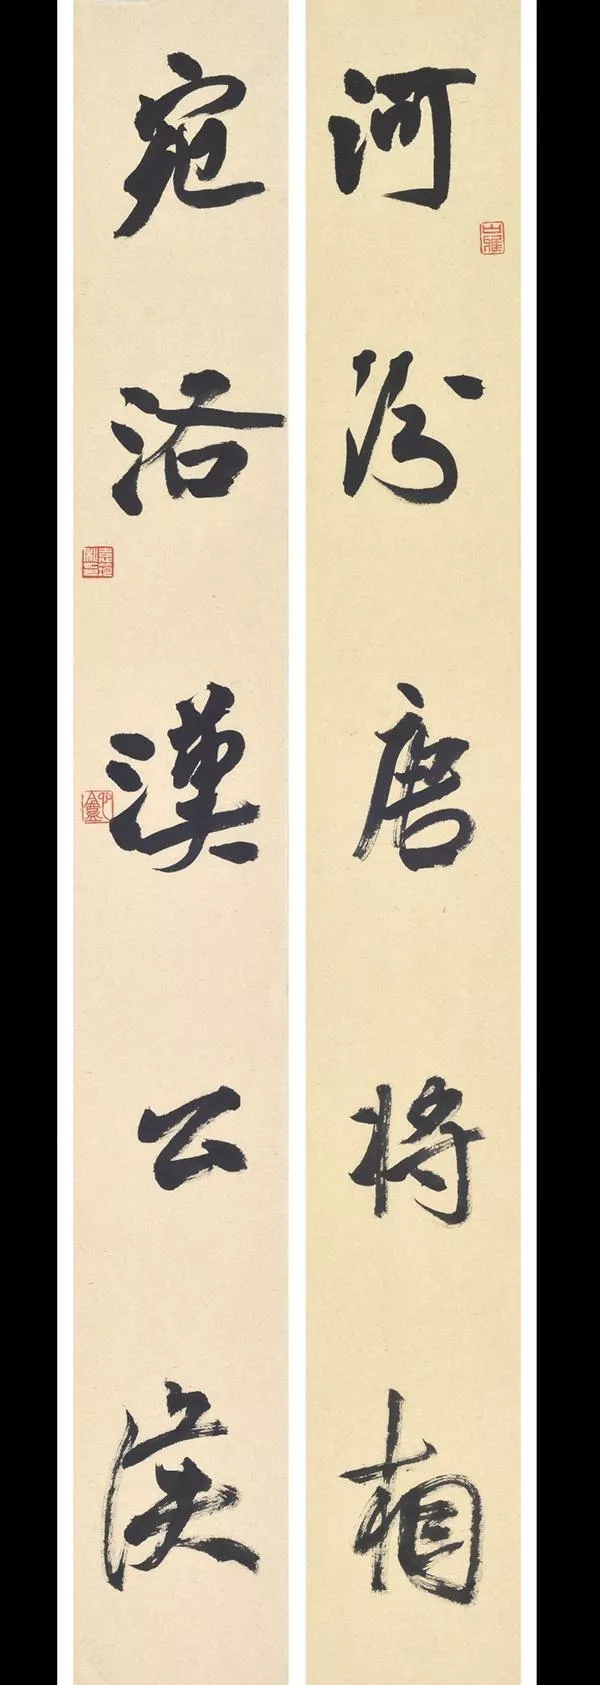 河汾唐将相
宛洛漢公侯